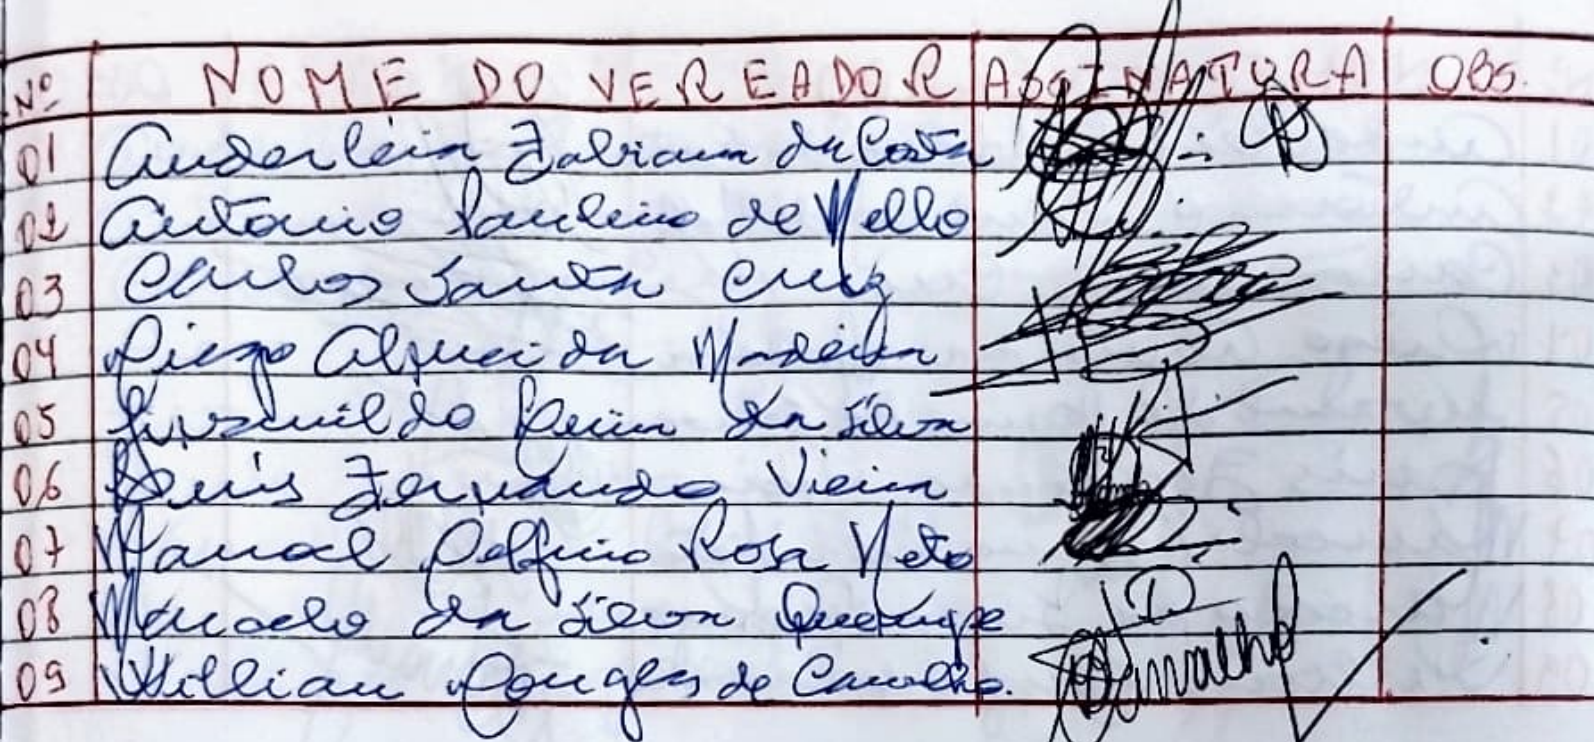 Nº NOME DO VEREADOR ASSINATURA OBS.
01 Anderleia Fabiana da Costa
02 Antonio Paulino de Mello
03 Carlos Santa Cruz
04 Diego Almeida Madeira
05 da Silva
06 Luis Fernando Vieira
07 Manoel Delfino Rosa Neto
08 Marcelo da Silva
09 Willian Douglas de Carvalho. Carvalho